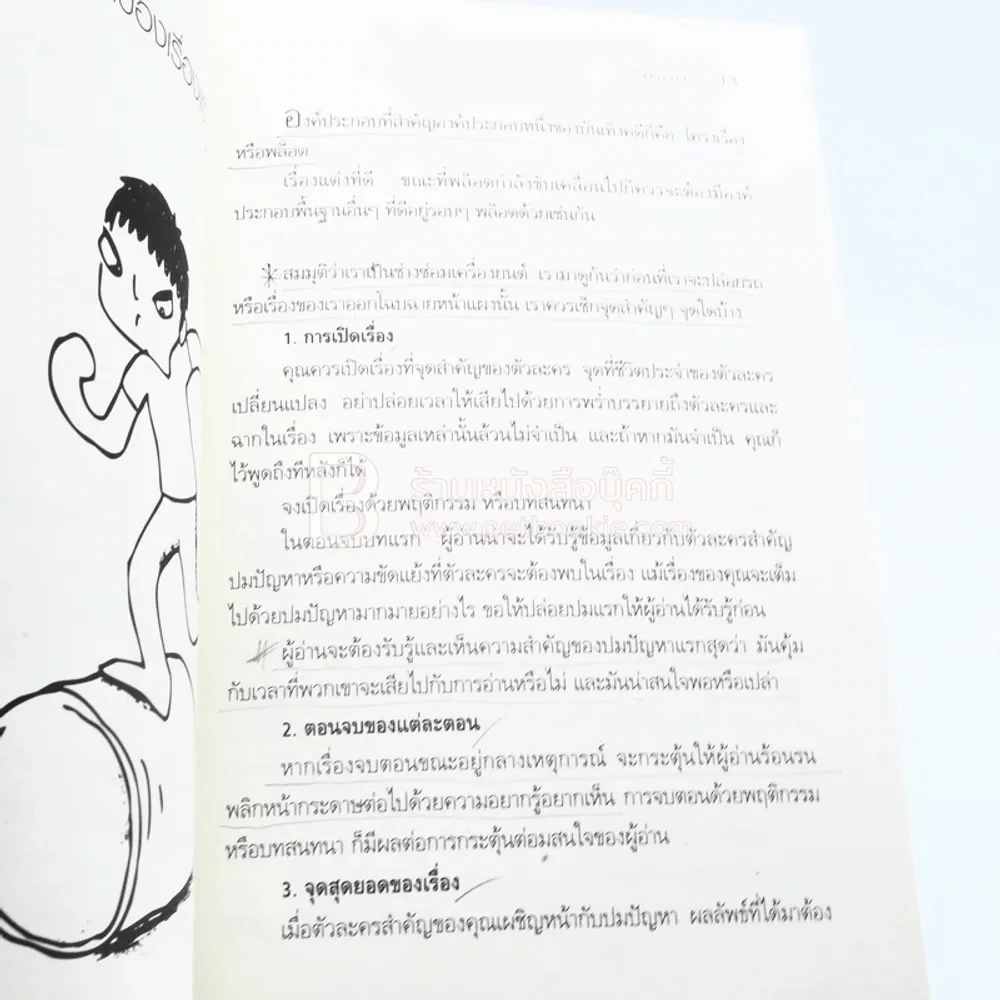 องค์ประกอบที่สำคัญองค์ประกอบหนึ่งของบันเทิงคดีก็คือ โครงเรื่อง
หรือพล็อต
เรื่องแต่งที่ดี ขณะที่พล็อตกำลังขับเคลื่อนไปก็ควรจะต้องมีองค์
ประกอบพื้นฐานอื่นๆ ที่ดีอยู่รอบๆ พล็อตด้วยเช่นกัน
สมมุติว่าเราเป็นช่างซ่อมเครื่องยนต์ เรามาดูกันว่าก่อนที่เราจะปล่อยรถ
หรือเรื่องของเราออกไปฉายหน้าแผงนั้น เราควรเช็กจุดสำคัญๆ จุดใดบ้าง
1. การเปิดเรื่อง
คุณควรเปิดเรื่องที่จุดสำคัญของตัวละคร จุดที่ชีวิตประจำของตัวละคร
เปลี่ยนแปลง อย่าปล่อยเวลาให้เสียไปด้วยการพร่ำบรรยายถึงตัวละครและ
ฉากในเรื่อง เพราะข้อมูลเหล่านั้นล้วนไม่จำเป็น และถ้าหากมันจำเป็น คุณก็
ไว้พูดถึงทีหลังก็ได้
ร้านหนังสือบุ๊คกี้
จงเปิดเรื่องด้วยพฤติกรรม หรือบทสนทนา
www.getbookie.com
ในตอนจบบทแรก ผู้อ่านน่าจะได้รับรู้ข้อมูลเกี่ยวกับตัวละครสำคัญ
ปมปัญหาหรือความขัดแย้งที่ตัวละครจะต้องพบในเรื่อง แม้เรื่องของคุณจะเต็ม
ไปด้วยปมปัญหามากมายอย่างไร ขอให้ปล่อยปมแรกให้ผู้อ่านได้รับรู้ก่อน
ผู้อ่านจะต้องรับรู้และเห็นความสำคัญของปมปัญหาแรกสุดว่า มันคุ้ม
กับเวลาที่พวกเขาจะเสียไปกับการอ่านหรือไม่ และมันน่าสนใจพอหรือเปล่า
2. ตอนจบของแต่ละตอน
หากเรื่องจบตอนขณะอยู่กลางเหตุการณ์ จะกระตุ้นให้ผู้อ่านร้อนรน
พลิกหน้ากระดาษต่อไปด้วยความอยากรู้อยากเห็น การจบตอนด้วยพฤติกรรม
หรือบทสนทนา ก็มีผลต่อการกระตุ้นต่อมสนใจของผู้อ่าน
3. จุดสุดยอดของเรื่อง
เมื่อตัวละครสำคัญของคุณเผชิญหน้ากับปมปัญหา ผลลัพธ์ที่ได้มาต้อง